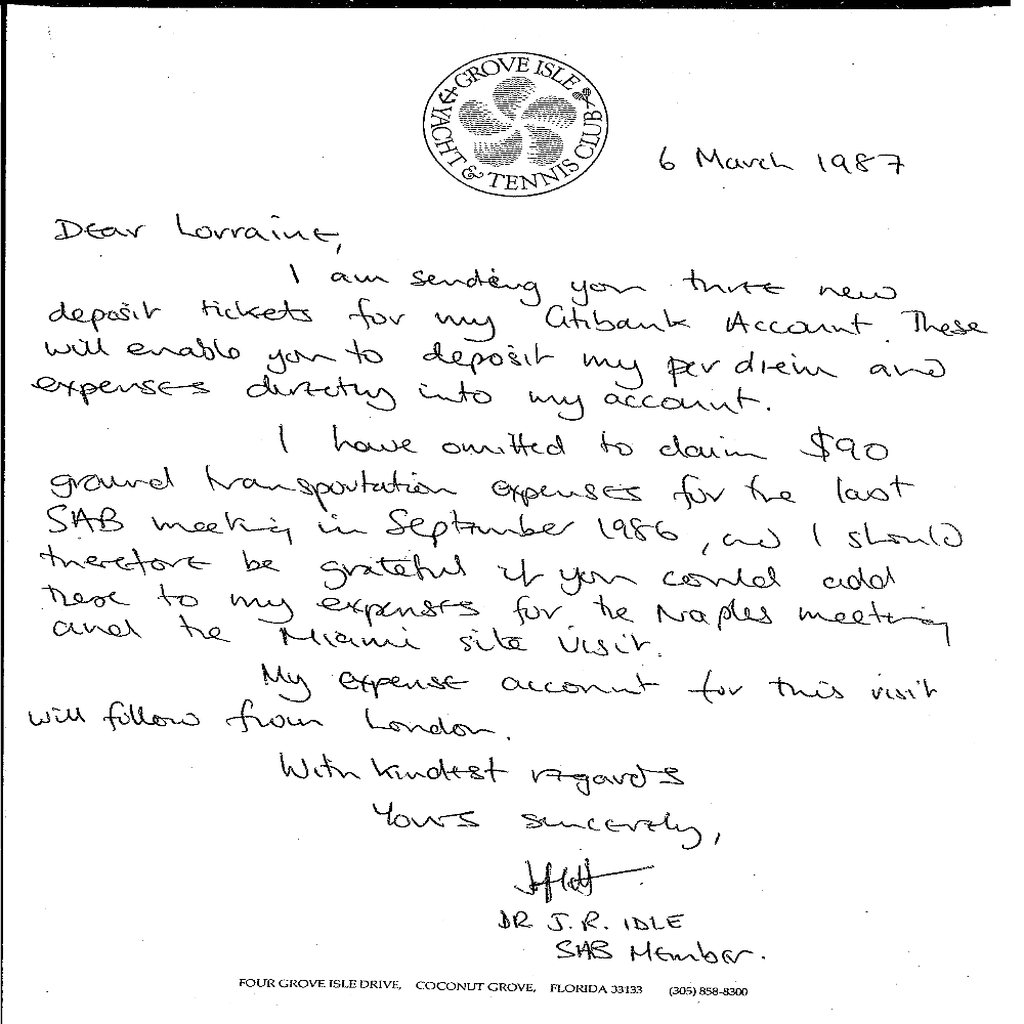 GROVE ISLE
YACHT & TENNIS CLUB
6 March 1987
Dear Lorraine,
I am sending you three new
deposit tickets for my Citibank Account. These
will enable you to deposit my per driem and
expenses directly into my account.
I have omitted to claim $90
ground transportation expenses for the last
SAB meeting in September 1986, and I should
therefore be grateful if you could add
these to my expenses for the Naples meeting
and the Miami site visit.
My expense account for this visit
will follow from London.
With kindest regards
Yours sincerely,
DR J.R. IDLE
SAB Member.
FOUR GROVE ISLE DRIVE, COCONUT GROVE, FLORIDA 33133 (305) 858-8300